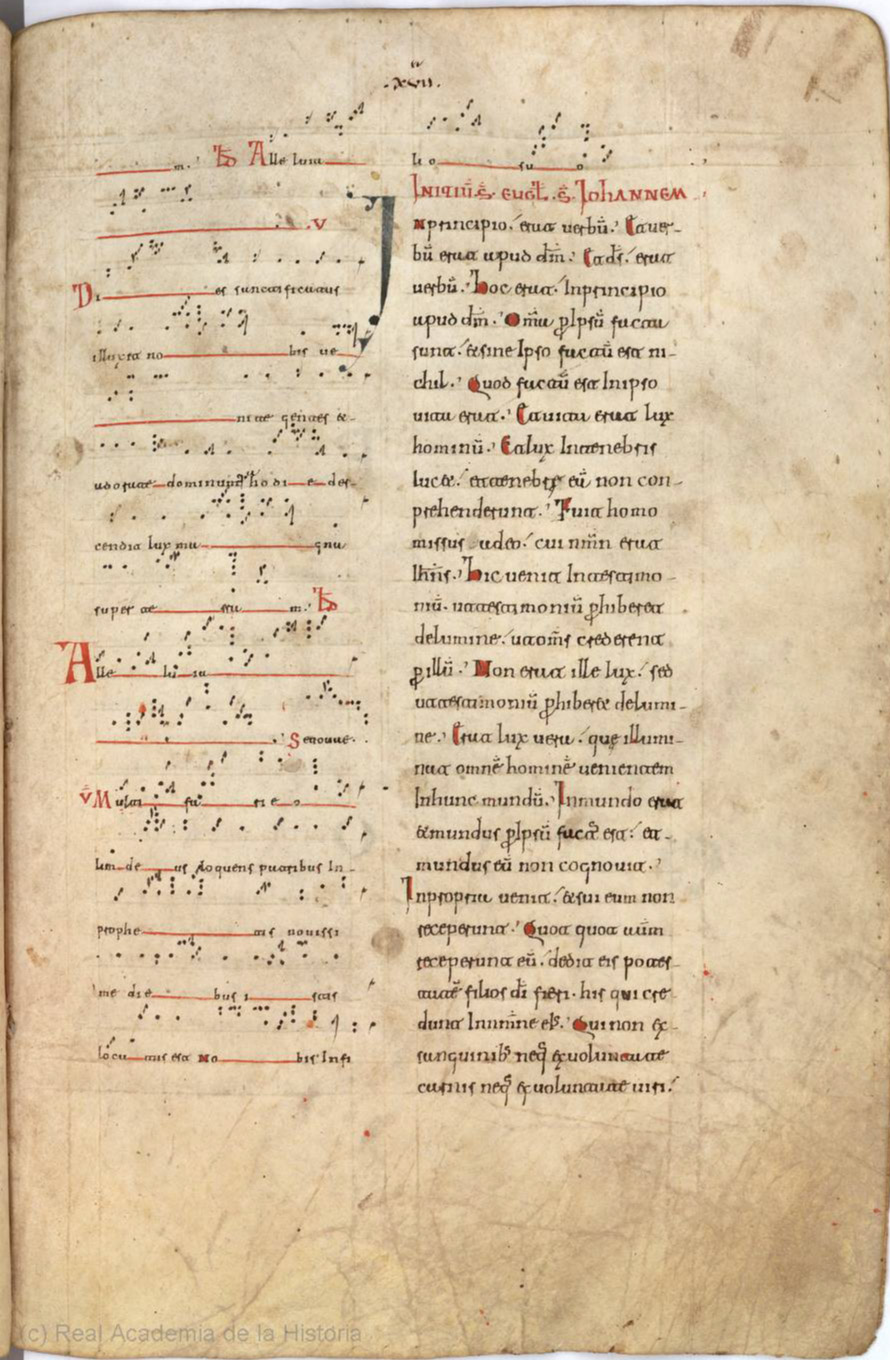 .xvii.
m. Alleluia
V
Dies sanctificatus
illuxit nobis ve
nite gentes et
adorate dominum hodie des
cendit lux magna
super terram.
Alleluia
Se nove.
V Multifarie o
lim deus loquens patribus In
prophetis novissi
me diebus istis
locutus est nobis In fi
lio suo
Initiū sc̄i eugl̄ sc̄d Iohannem
Inprincipio erat verbū. Et ver
bū erat apud dm̄. Et ds̄ erat
verbū. Hoc erat Inprincipio
apud dm̄. Omīa p Ipsū facta
sunt et sine Ipso factū est ni
chil. Quod factū est In ipso
vita erat. Et vita erat lux
hominū. Et lux Intenebris
lucet et tenebre eū non con
prehenderunt. Fuit homo
missus adeo cui nm̄n erat
Ioh̄ns. Hic venit Intestimo
niū. ut testimoniū phiberet
delumine ut om̄s crederent
p illū. Non erat ille lux sed
ut testimoniū phiberet delumi
ne. Erat lux vera que illumi
nat omnē hominē venientem
Inhunc mundū. Inmundo erat
et mundus p Ipsū factꝰ est et
mundus eū non cognovit.
Inpropria venit et sui eum non
receperunt. Quot quot aūm
receperunt eū dedit eis potes
tatē filios dī fieri his qui cre
dunt Innom̄ne eiꝰ. Qui non ex
sanguinibꝰ neqꝫ exvoluntate
carnis neqꝫ exvoluntate viri
(c) Real Academia de la Historia